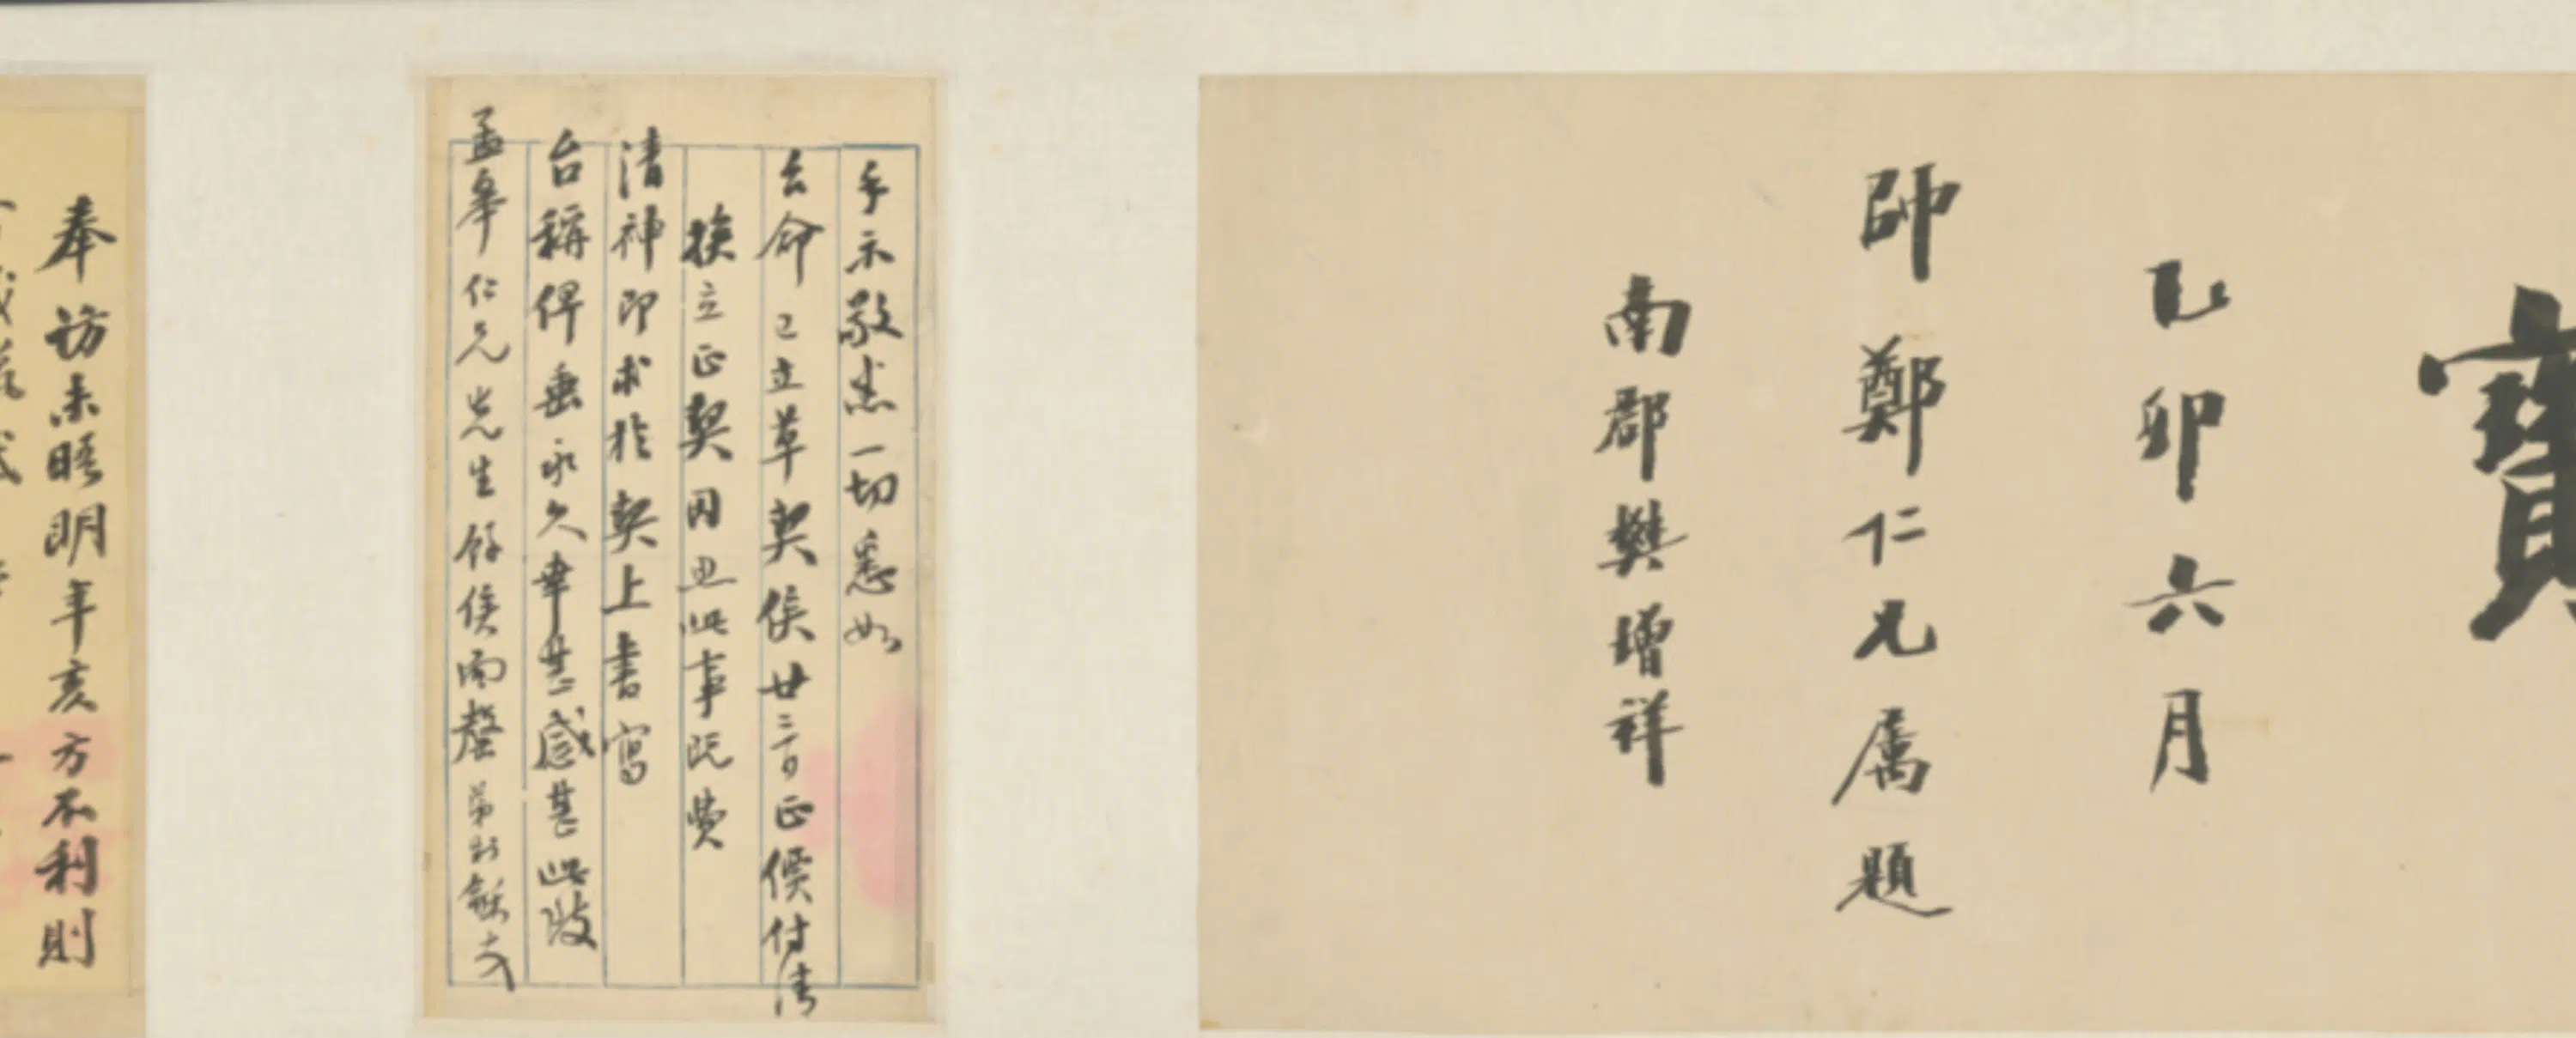 寶
乙卯六月
師鄭仁兄屬題
南郡樊增祥
手示敬悉一切悉如
台命已立草契俟廿二三日正價付清
挨立正契因思此事既費
清神即求於契上書寫
台稱俾垂永久幸甚感甚此致
孟 仁兄先生 侯 弟
奉訪未晤明年亥方不利則